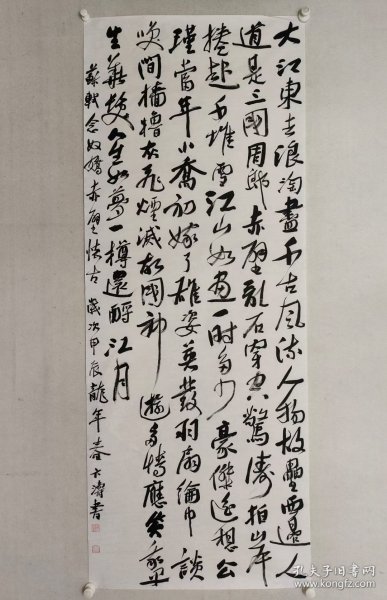 大江東去浪淘盡千古風流人物故壘西邊人
道是三國周郎赤壁亂石穿空驚濤拍岸
捲起千堆雪江山如畫一時多少豪傑遙想公
瑾當年小喬初嫁了雄姿英發羽扇綸巾談
笑間檣櫓灰飛煙滅故國神遊多情應笑我早
生華髮人生如夢一樽還酹江月
蘇軾念奴嬌赤壁懷古歲次甲辰龍年春大濤書
孔夫子旧书网